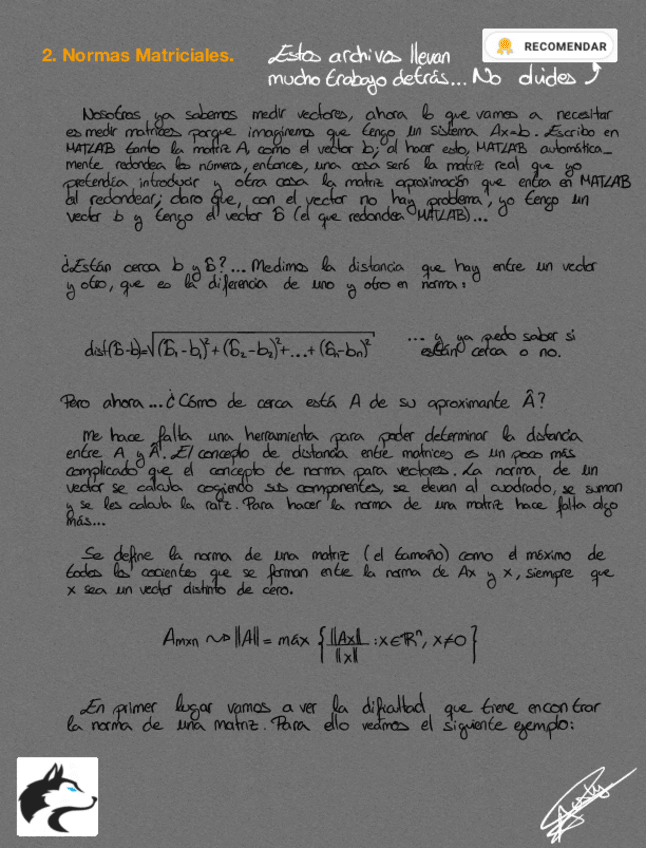 2. Normas Matriciales.
Estos archivos llevan
mucho trabajo detrás... No olvides
RECOMENDAR
Nosotros ya sabemos medir vectores, ahora lo que vamos a necesitar
es medir matrices porque imaginemos que tengo un sistema Ax=b. Escribo en
MATLAB tanto la matriz A, como el vector b; al hacer esto, MATLAB automática_
mente redondea los números, entonces, una cosa será la matriz real que yo
pretendía introducir y otra cosa la matriz aproximación que entra en MATLAB
al redondear; claro que, con el vector no hay problema, yo tengo un
vector b y tengo el vector b̂ (el que redondea MATLAB)...
¿Están cerca b y b̂?... Medimos la distancia que hay entre un vector
y otro, que es la diferencia de uno y otro en norma:
dist(b̂-b)=√(b̂₁-b₁)²+(b̂₂-b₂)²+...+(b̂n-bn)² ... y ya puedo saber si
están cerca o no.
Pero ahora...¿Cómo de cerca está A de su aproximante Â?
Me hace falta una herramienta para poder determinar la distancia
entre A y Â. El concepto de distancia entre matrices es un poco más
complicado que el concepto de norma para vectores. La norma de un
vector se calcula cogiendo sus componentes, se elevan al cuadrado, se suman
y se les calcula la raíz. Para hacer la norma de una matriz hace falta algo
más...
Se define la norma de una matriz (el tamaño) como el máximo de
todos los cocientes que se forman entre la norma de Ax y x, siempre que
x sea un vector distinto de cero.
Amxn ⇝ ||A|| = máx { ||Ax|| / ||x|| : x∈ℝⁿ, x≠0 }
En primer lugar vamos a ver la dificultad que tiene encontrar
la norma de una matriz. Para ello veamos el siguiente ejemplo: